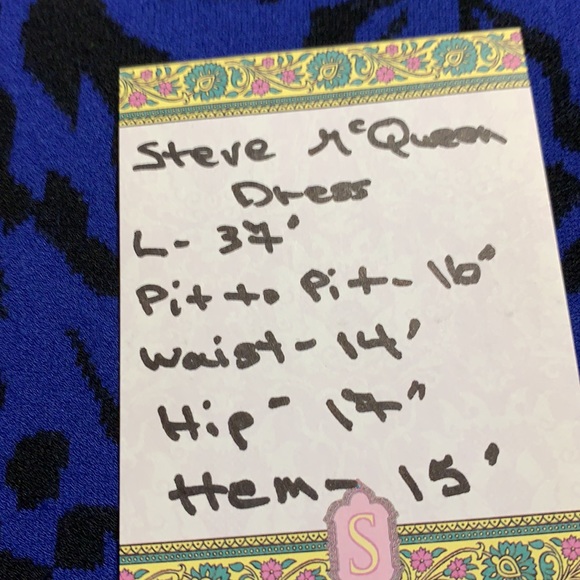 Steve McQueen
Dress
L - 37'
Pit to Pit - 16"
Waist - 14'
Hip - 17"
Hem - 15'
S